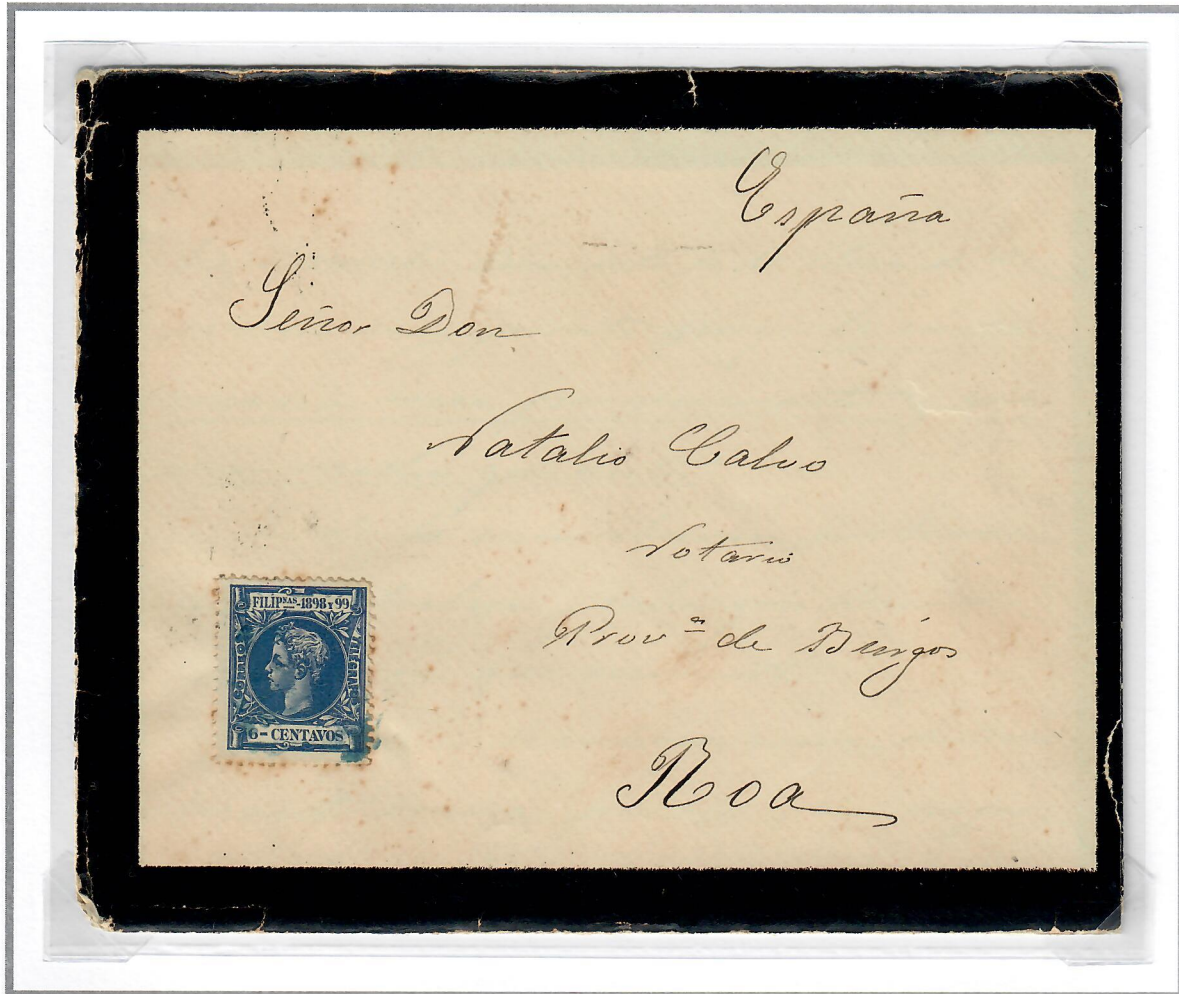 España
Señor Don
Natalio Calvo
Notario
Provª de Burgos
Roa
FILIPNAS-1898 Y 99
CORREOS
6-CENTAVOS